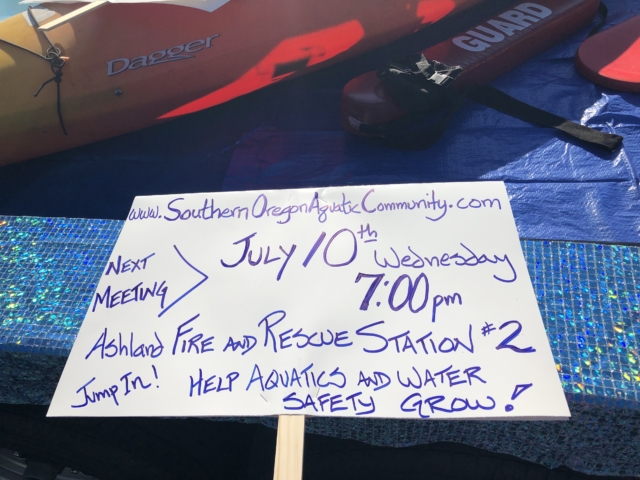 Dagger
GUARD
www.SouthernOregonAquaticCommunity.com
NEXT MEETING > JULY 10th Wednesday
7:00pm
Ashland FIRE AND RESCUE STATION #2
Jump In! HELP AQUATICS AND WATER
SAFETY GROW!